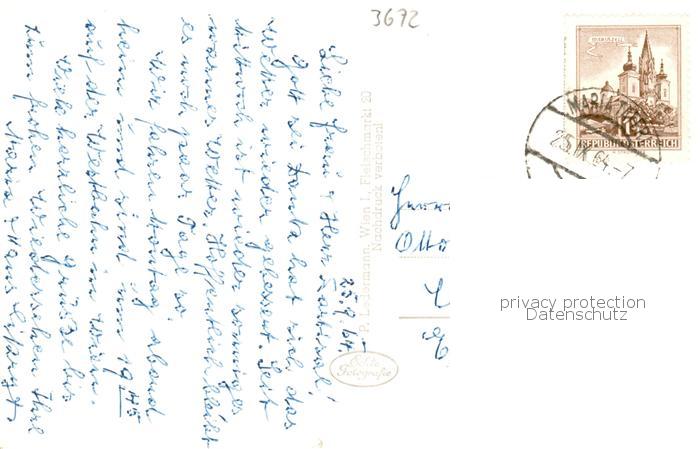 3672
MARIAZELL
MARIA
25.IX.64.-7
REPUBLIK ÖSTERREICH
25.9.64.
Liebe Frau & Herr
Gott sei Dank hat sich das
Wetter wieder gebessert. Seit
Mittwoch ist wieder sonniges
warmes Wetter. Hoffentlich bleibt
es noch paar Tage so.
Wir fahren Montag abend
heim und sind um 19 45
auf der Westbahn in Wien.
Viele herzliche Grüße bis
zum frohen Wiedersehen Ihre
Maria & Hans
P. Ledermann, Wien I., Fleischmarkt 20
Nachdruck verboten!
Echte
Fotografie
Herrn
Otto
privacy protection
Datenschutz